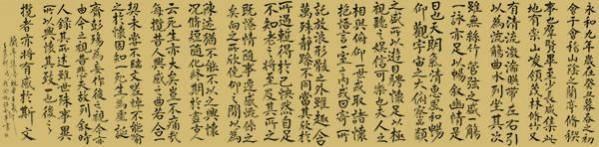 永和九年歲在癸丑暮春之初
會于會稽山陰之蘭亭脩禊
事也群賢畢至少長咸集此
地有崇山峻領茂林脩竹又
有清流激湍暎帶左右引
以為流觴曲水列坐其次
雖無絲竹管弦之盛一觴
一詠亦足以暢敘幽情是
日也天朗氣清惠風和暢
仰觀宇宙之大俯察品類
之盛所以遊目騁懷足以極
視聽之娛信可樂也夫人之
相與俯仰一世或取諸懷
抱悟言一室之內或因寄所
託放浪形骸之外雖趣舍
萬殊靜躁不同當其欣於
所遇暫得於己快然自足
不知老之將至及其所之
既惓情隨事遷感慨係之
矣向之所欣俛仰之間以為
陳迹猶不能不以之興懷
況脩短隨化終期於盡古人
云死生亦大矣豈不痛哉
每攬昔人興感之由若合一
契未嘗不臨文嗟悼不能喻
之於懷固知一死生為虛誕
齊彭殤為妄作後之視今亦
由今之視昔悲夫故列敘時
人錄其所述雖世殊事異
所以興懷其致一也後之
攬者亦將有感於斯文